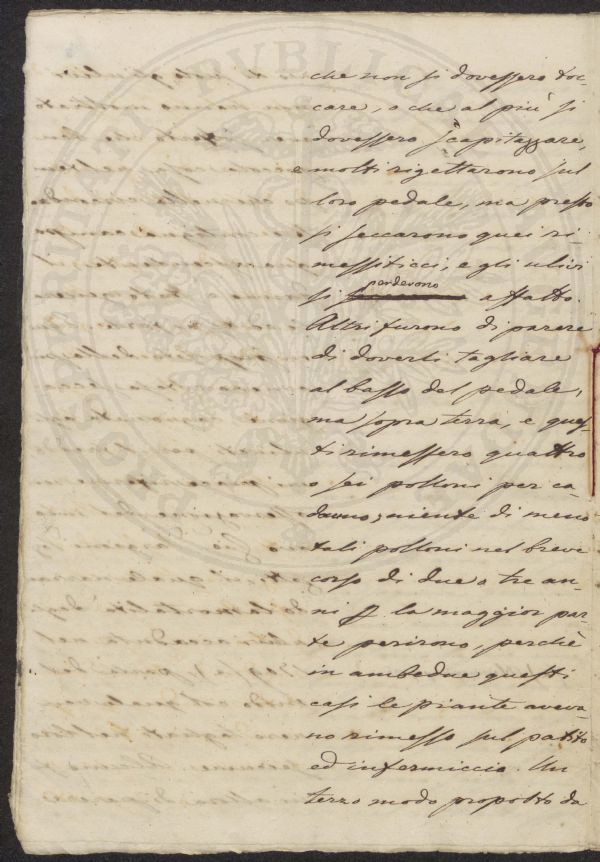 che non si dovessero toc-
care, o che al più si
dovessero scapitazzare,
e molti rigettarono sul
loro pedale, ma presto
si seccarono quei ri-
messiticci, e gli ulivi
si perderono affatto.
Altri furono di parere
di doverli tagliare
al basso del pedale,
ma sopra terra, e ques-
ti rimessero quattro
o sei polloni per ca-
dauno; niente di meno
tali polloni nel breve
corso di due o tre an-
ni p. la maggior par-
te perirono, perchè
in ambedue questi
casi le piante aveva-
no rimesso sul patito
ed infermiccio. Un
terzo modo proposto da
PROSPERITATI PUBLICAE